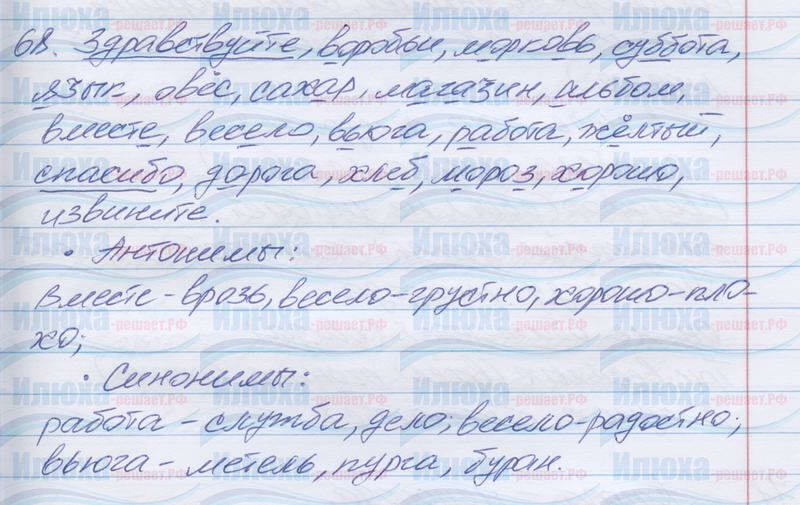 68. Здравствуйте, воробьи, морковь, суббота,
язык, овёс, сахар, магазин, альбом,
вместе, весело, вьюга, работа, жёлтый,
спасибо, дорога, хлеб, мороз, хорошо,
извините.
• Антонимы:
Вместе - врозь, весело - грустно, хорошо - пло-
хо;
• Синонимы:
работа - служба, дело; весело - радостно;
вьюга - метель, пурга, буран.